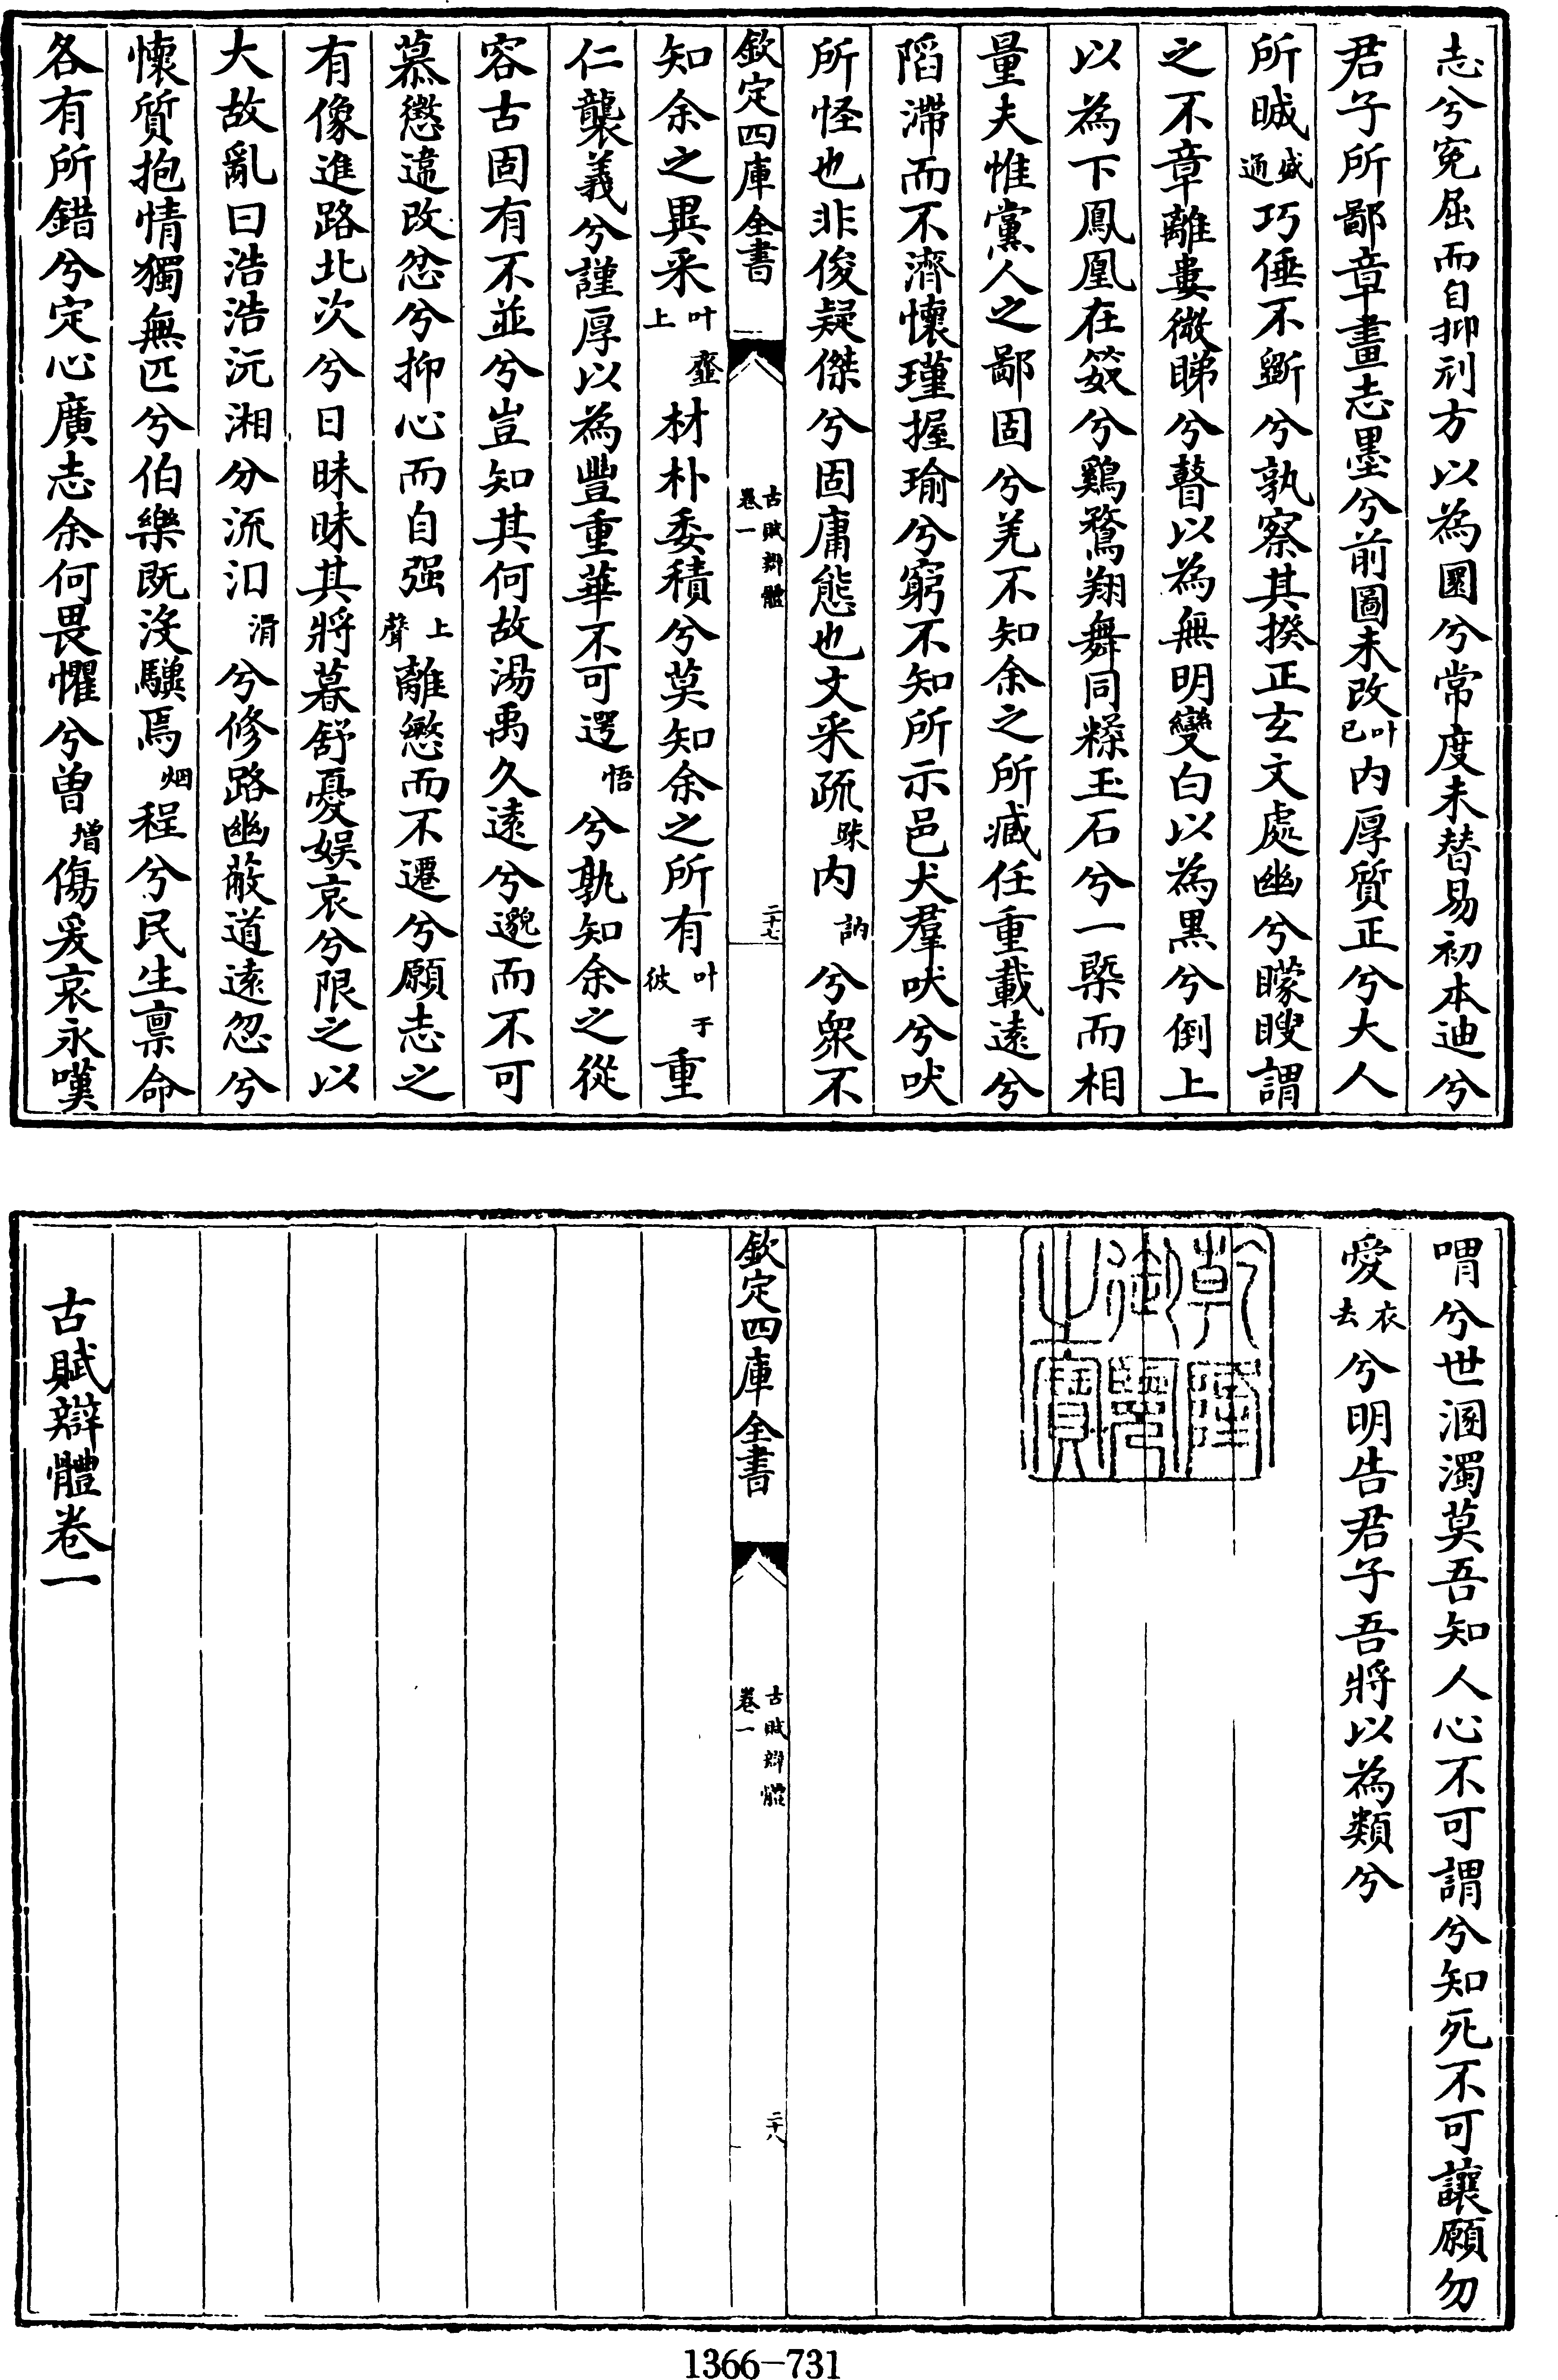 志兮寃屈而自抑刓方以為圜兮常度未替易初本迪兮
君子所鄙章畫志墨兮前圖未改叶已内厚質正兮大人
所晠盛通巧倕不斵兮孰察其揆正玄文處幽兮矇瞍謂
之不章離婁微睇兮瞽以為無明變白以為黒兮倒上
以為下鳳凰在笯兮鷄鶩翔舞同糅玉石兮一槩而相
量夫惟黨人之鄙固兮羌不知余之所臧任重載逺兮
䧟滯而不濟懷瑾握瑜兮窮不知所示邑犬羣吠兮吠
所怪也非俊疑傑兮固庸態也文采疏㫾内訥兮衆不
欽定四庫全書
古賦辯體
卷一
二十七
知余之異采叶𪗉上材朴委積兮莫知余之所有叶于彼重
仁襲義兮謹厚以為豐重華不可遌悟兮孰知余之從
容古固有不並兮豈知其何故湯禹久逺兮邈而不可
慕懲違改忿兮抑心而自强上聲離慜而不遷兮願志之
有像進路北次兮日昧昧其將暮舒憂娱哀兮限之以
大故亂曰浩浩沅湘分流汩涓兮修路幽蔽道逺忽兮
懷質抱情獨無匹兮伯樂既沒驥焉烟程兮民生禀命
各有所錯兮定心廣志余何畏懼兮曾増傷爰哀永嘆
喟兮世溷濁莫吾知人心不可謂兮知死不可讓願勿
愛衣去兮明告君子吾將以為類兮
乾隆御覽之寳
欽定四庫全書
古賦辯體
卷一
二十八
古賦辯體卷一
1366-731